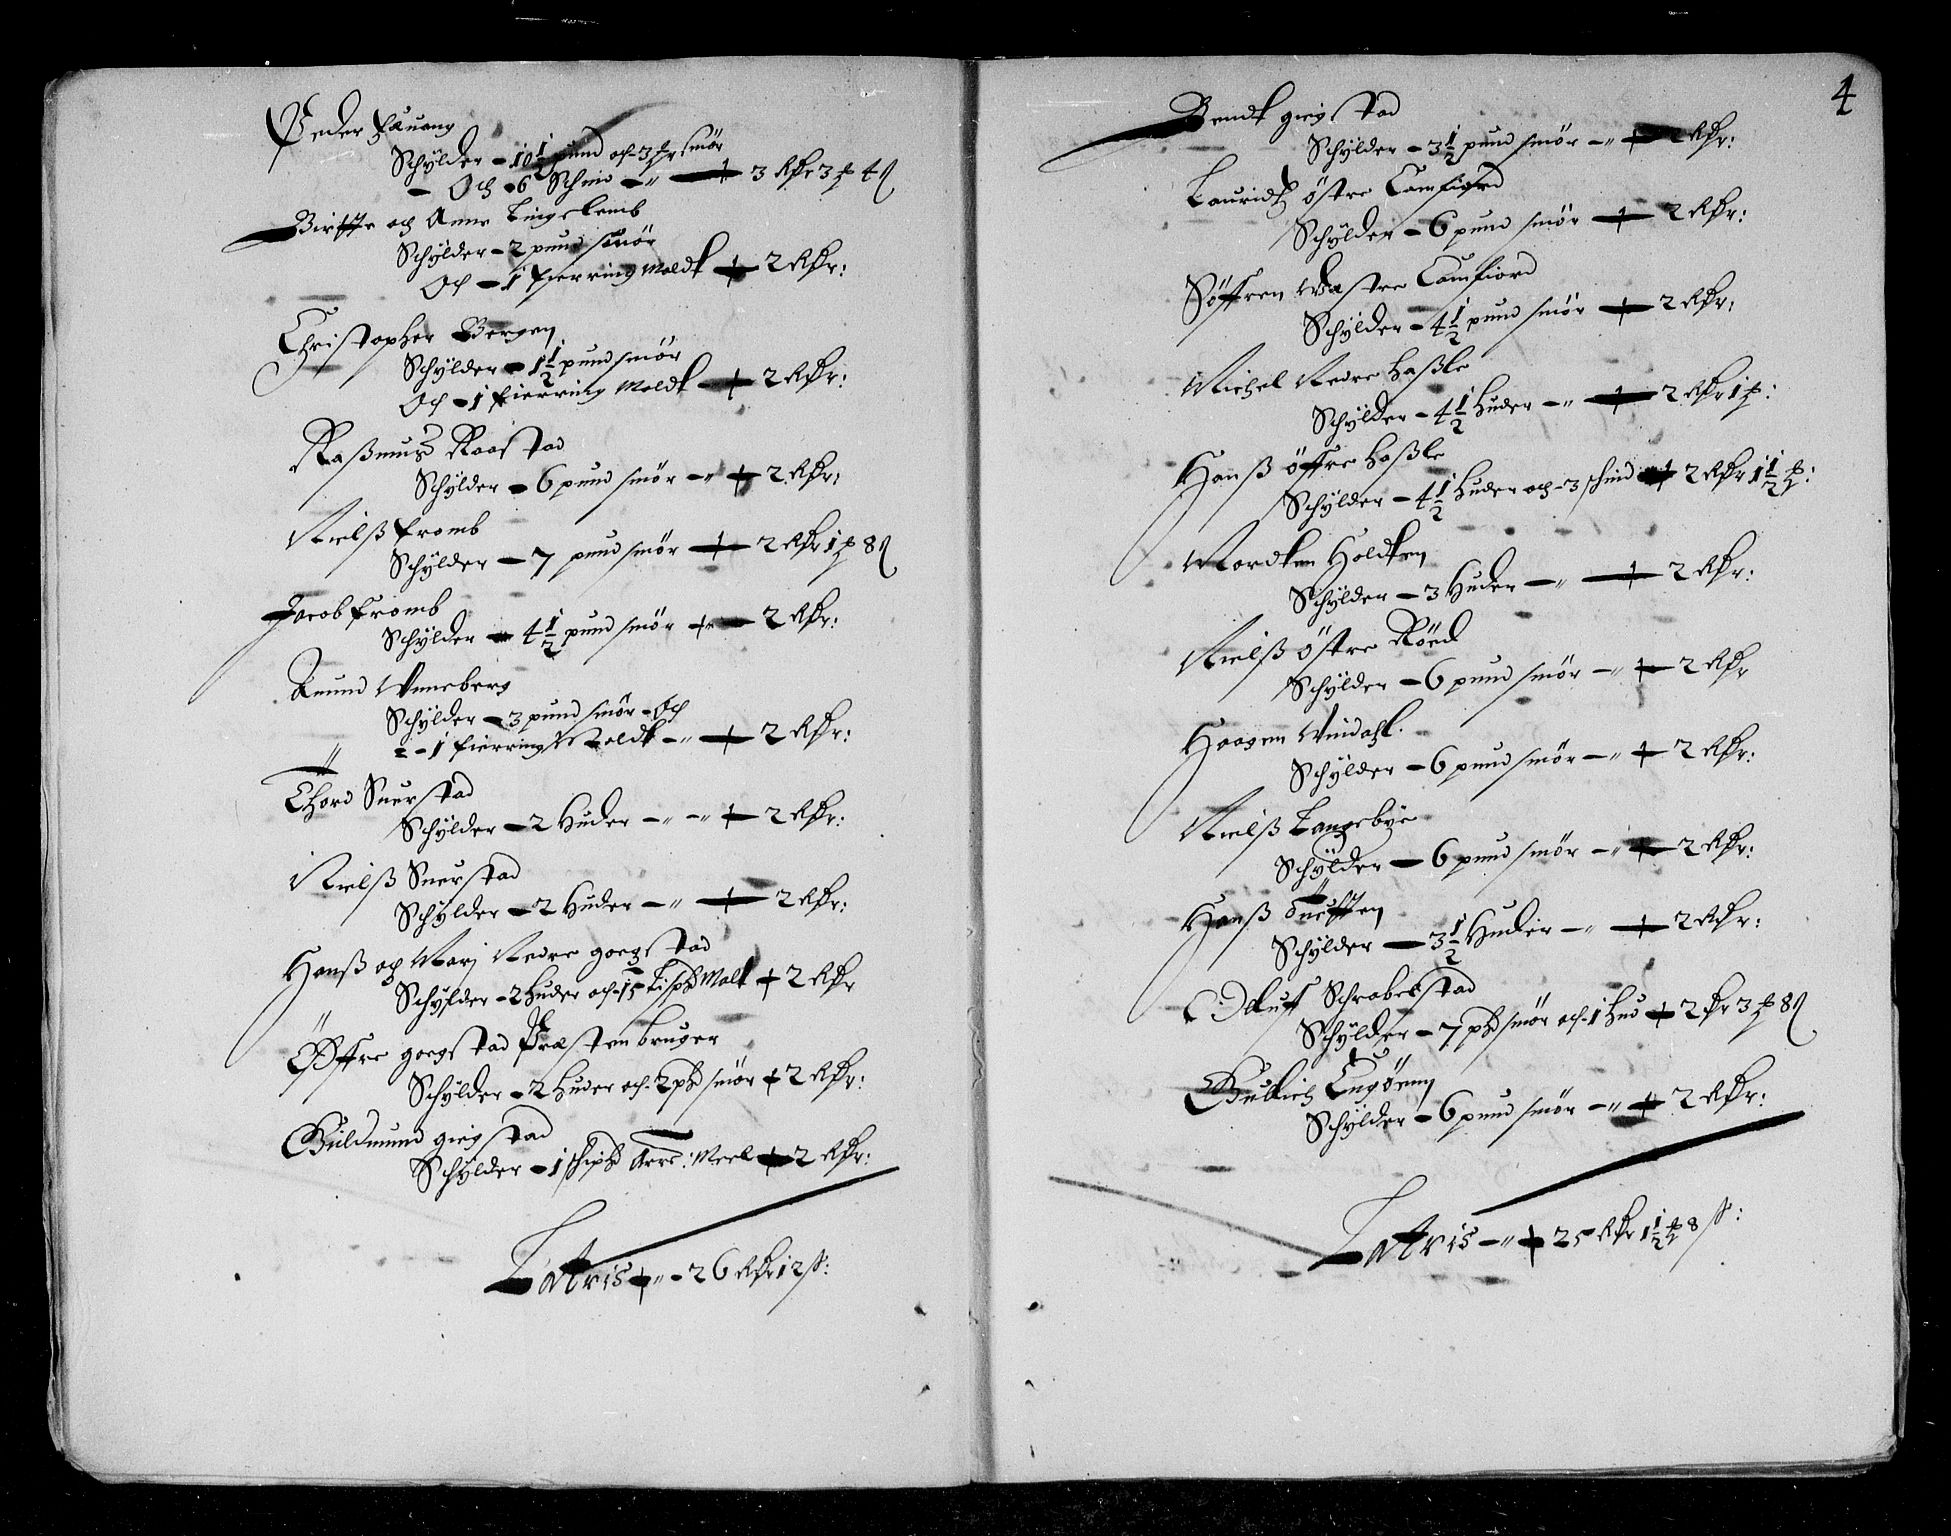 Peder Fæuang
Schÿlder - 10 1/2 pund och 3 smör
- Och - 6 Schind - " - 3 Rdr 3 4 ß
Birtte och Anne Lingelemb
Schÿlder - 2 pund smör
Och - 1 fierring Maldt - 2 Rdr:
Christopher Bergen
Schÿlder - 1 1/2 pund smör
Och - 1 fierring Maldt - 2 Rdr:
Raßmus Raastad
Schÿlder - 6 pund smör - " - 2 Rdr:
Nielß Fromb
Schÿlder - 7 pund smör - 2 Rdr 1 8 ß
Jacob Fromb
Schÿlder - 4 1/2 pund smör - 2 Rdr:
Amund Vnneberg
Schÿlder - 3 pund smör - Och
2 - 1 fierring Maldt - " - 2 Rdr:
Thord Suerstad
Schÿlder - 2 Huder - " - " - 2 Rdr:
Nielß Suerstad
Schÿlder - 2 Huder - " - 2 Rdr:
Hanß og Marj Nedre goegstad
Schÿlder - 2 Huder och 15 Lispd Malt - 2 Rdr
Öffre goegstad Præsten bruger
Schÿlder - 2 Huder och - 2 pd smör - 2 Rdr:
Guldmund giegstad
Schÿlder - 1 schipd Meel - 2 Rdr:
Latris - " - 26 Rdr 12 ß:
4
Bendt giegstad
Schÿlder - 3 1/2 pund smör - " - 2 Rdr:
Lauridtz östre Camfiord
Schÿlder - 6 pund smör - 2 Rdr:
Söffren Væstre Camfiord
Schÿlder - 4 1/2 pund smör - 2 Rdr:
Michel Nedre Haßle
Schÿlder - 4 1/2 Huder - " - 2 Rdr 1 :
Hanß öffre Haßle
Schÿlder - 4 1/2 Huder och - 3 schind - 2 Rdr 1 1/2 :
Holdten
Schÿlder - 3 Huder - " - 2 Rdr:
Nielß östre Röed
Schÿlder - 6 pund smör - " - 2 Rdr
Haagen Vindahl.
Schÿlder - 6 pund smör - " - 2 Rdr:
Nielß Langebÿe
Schÿlder - 6 pund smör - " - 2 Rdr:
Hanß
Schÿlder - 3 1/2 Huder - " - 2 Rdr:
Oluff Schrabestad
Schÿlder - 7 pd smör och - 1 Hud - 2 Rdr 3 8 ß
Gullich
Schÿlder - 6 pund smör - " - 2 Rdr:
Latris - " - 25 Rdr 1 1/2 8 ß: